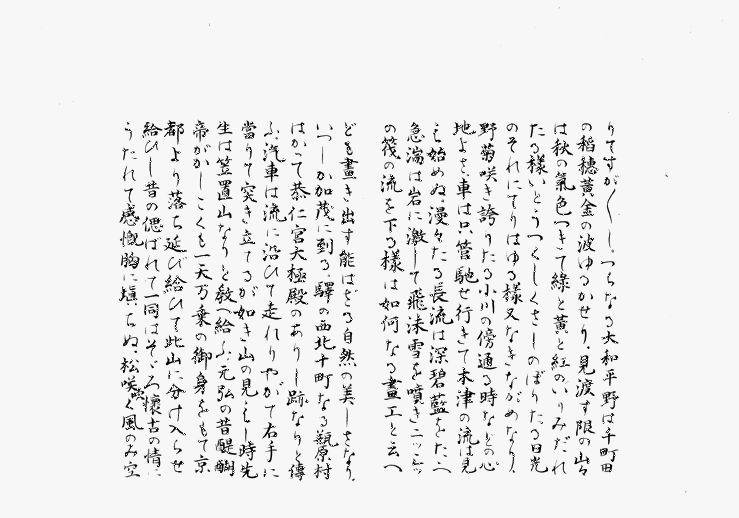 りてすが〳〵しうつらなる大和平野は千町田
の稲穂黄金の波ゆるかせり、見渡す限の山々
は秋の氣色つきて綠と黃と紅のいりみだれ
たる様いとうつくしくさしのぼりたる日光
のそれにてりはゆる様又なきながめなり、
野菊咲き誇りたる小川の傍通る時などの心
地よさ、車は只管馳せ行きて木津の流は見
え始めぬ、漫々たる長流は深碧藍をたゝへ
急湍は岩に激して飛沫雪を噴き二ッ三ッ
の筏の流を下る様は如何なる畫工と云へ
ども畫き出す能はざる自然の美しさなり、
いつしか加茂に到る、驛の西北十町なる瓶原村
はかつて恭仁宮大極殿のありし跡なりと傳
ふ、汽車は流に沿ひて走れりやがて右手に
當りて突き立てるが如き山の見えし時先
生は笠置山なりと敎へ給ふ、元弘の昔醍醐
帝がかしこくも一天万乗の御身をもて京
都より落ち延び給ひて此山に分け入らせ
給ひし昔の偲ばれて一同はそゞろ懷古の情に
うたれて感慨胸に塡ちぬ、松吹く風のみ空